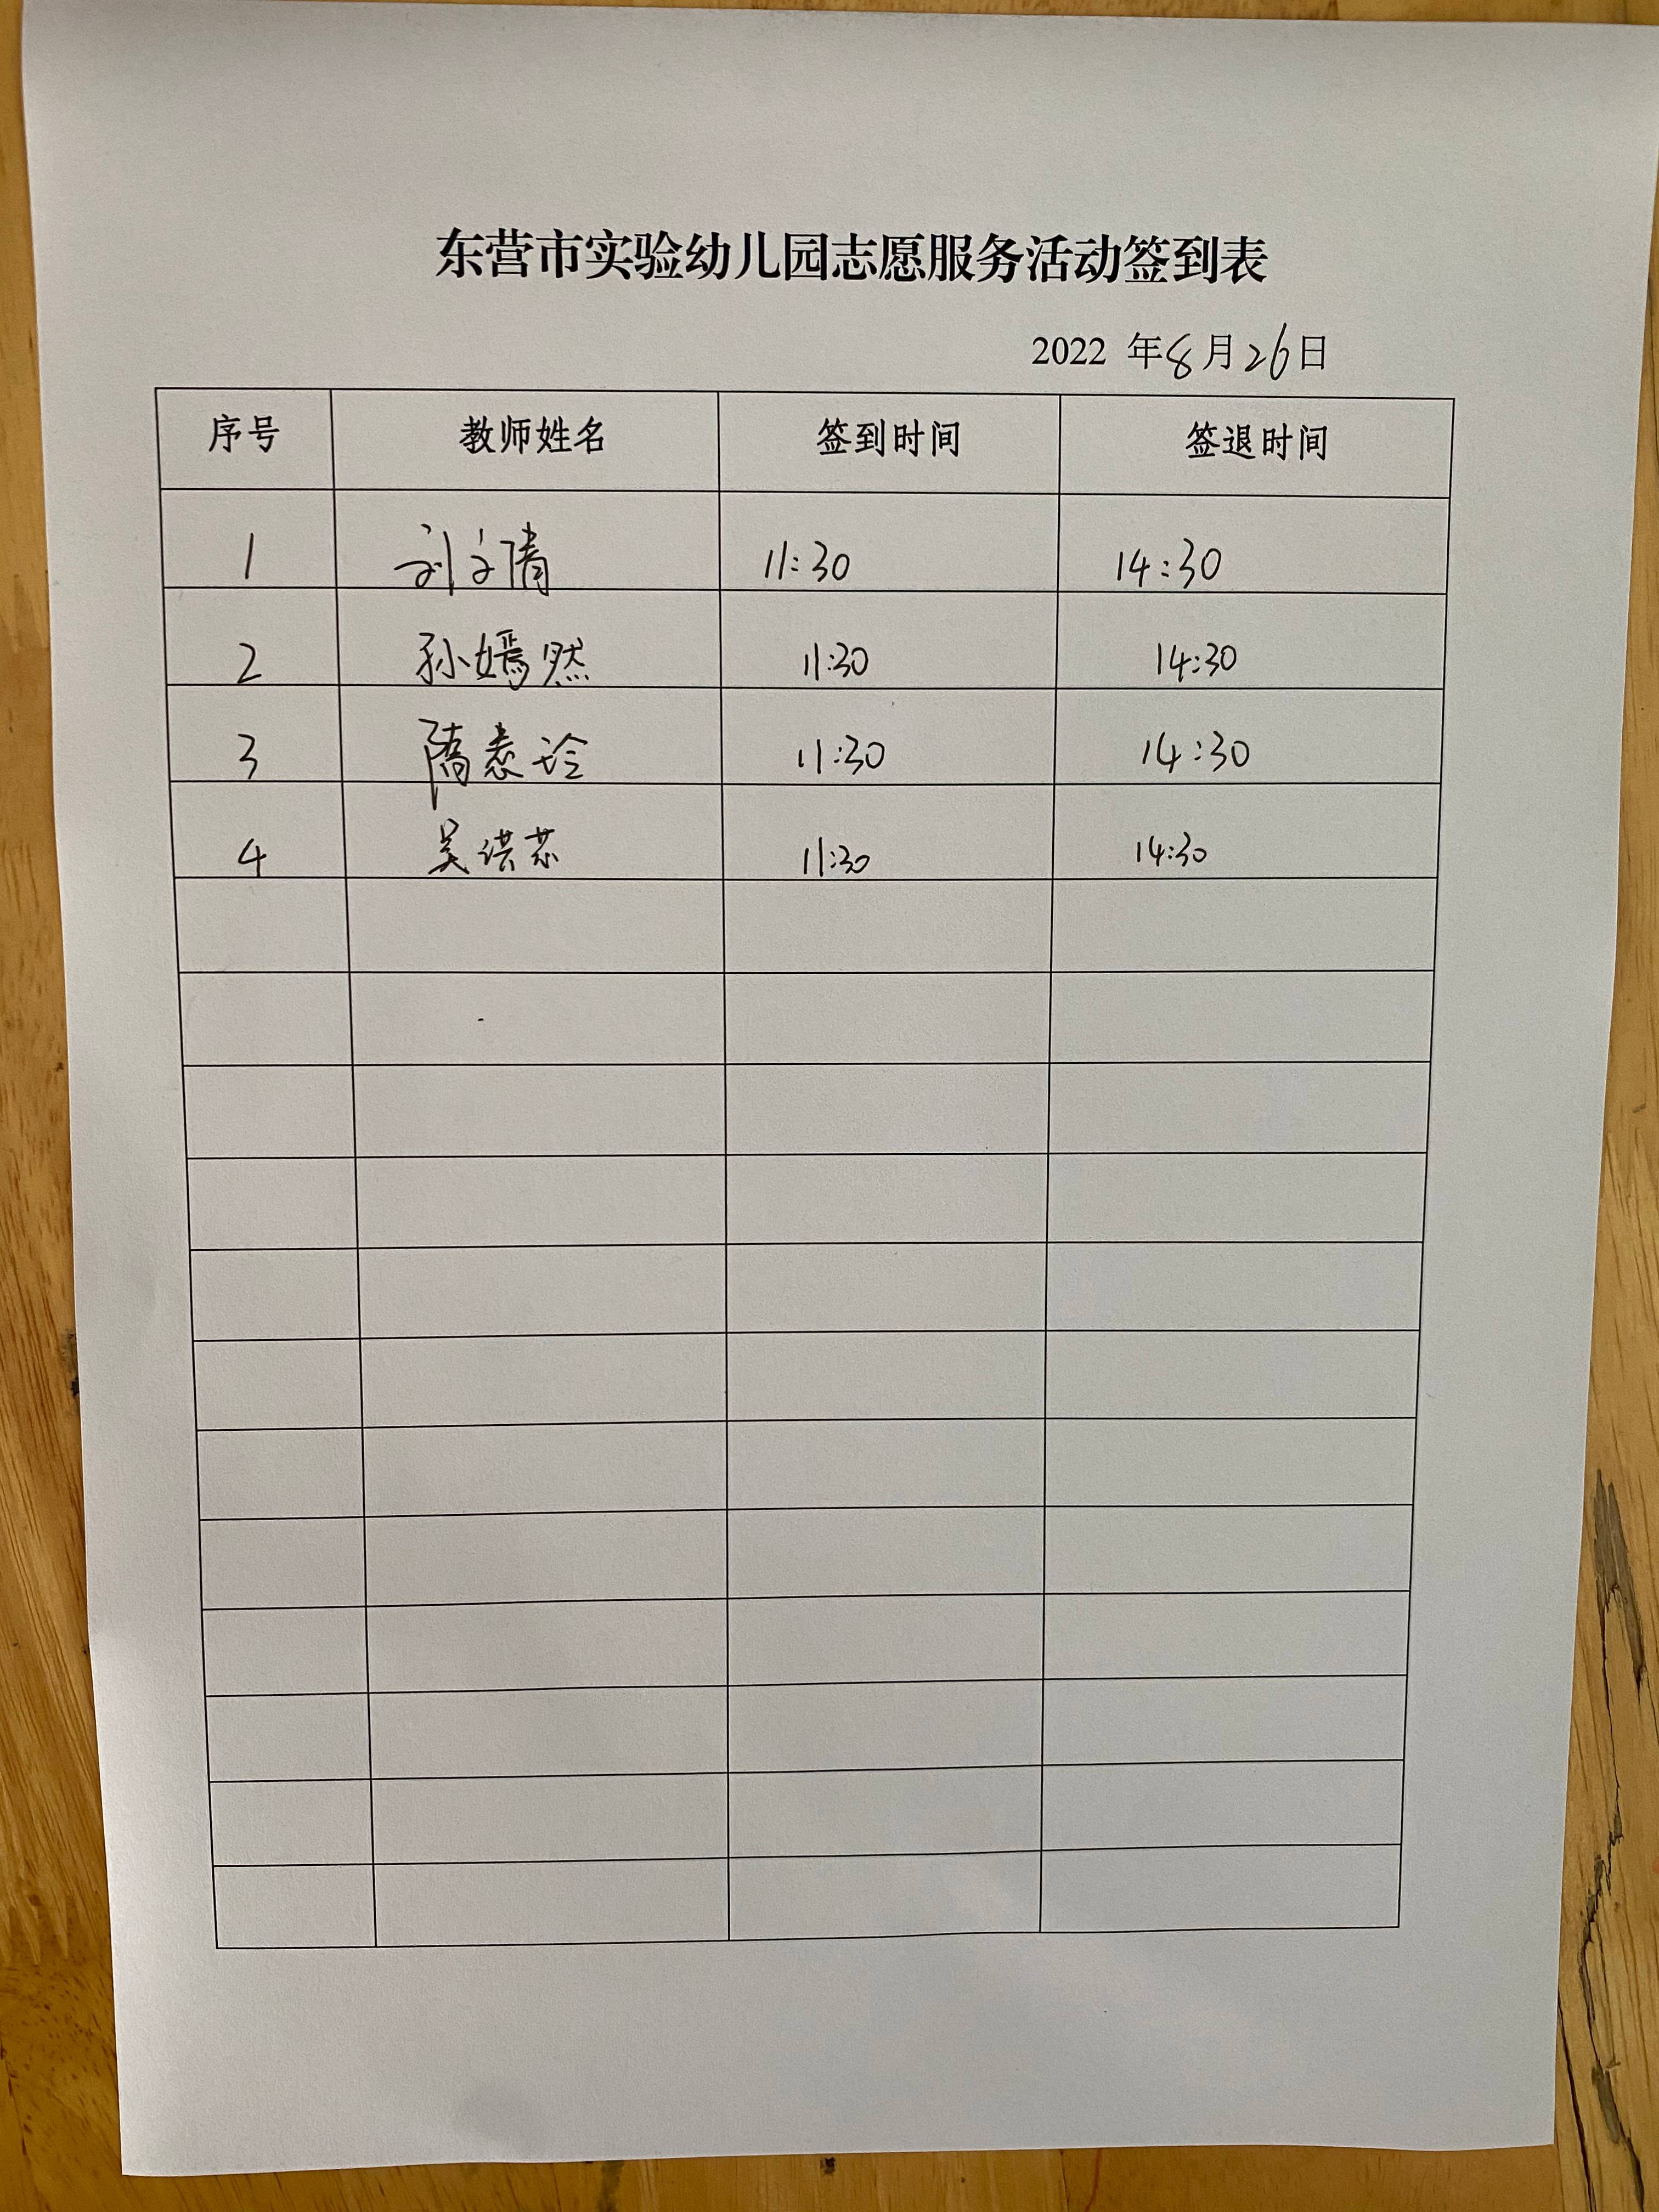 东营市实验幼儿园志愿服务活动签到表
2022 年8月26日
序号 教师姓名 签到时间 签退时间
1 刘文倩 11:30 14:30
2 孙嫣然 11:30 14:30
3 11:30 14:30
4 吴洪 11:30 14:30